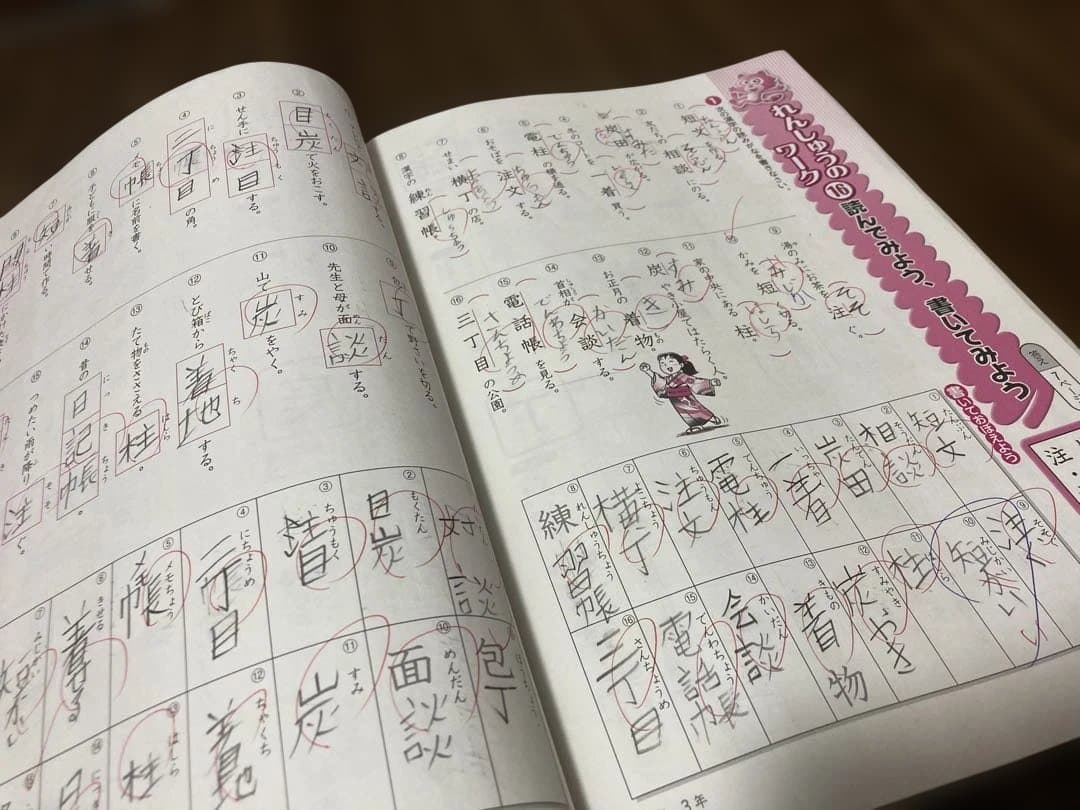 れんしゅうのワーク
16
読んでみよう、書いてみよう
書いておぼえよう
答え
注・
1
① 短火
② 相談 する。
③ 炭田
④ 一着 買う。
⑤ 電柱 の横を通る。
⑥ おそばを 注文 する。
⑦ せまい 横丁 の店。
⑧ 漢字の 練習帳
⑨ 湯のみにお茶を 注ぐ。
かみを 短
⑪ 家の中央にある 柱。
⑫ 炭やき お屋ではたらく人。
⑬ お正月の 着物。
⑭ 首相が 会談 する。
⑮ 電話帳 を見る。
⑯ 三丁目 の公園。
① 短文 たんぶん
② 相談 そうだん
③ 炭田 たんでん
④ 一着
⑤ 電柱
⑥ 注文 ちゅうもん
⑦ 横丁 よこちょう
⑧ 練習帳 れんしゅうちょう
⑨ 注ぐ そそぐ
⑩ 短い みじかい
⑪ 柱 はしら
⑫ 炭やき すみやき
⑬ 着物 きもの
⑭ 会談 かいだん
⑮ 電話帳 でんわちょう
⑯ 三丁目 さんちょうめ
3年
② 目炭 で火をおこす。
③ せん手に 注目 する。
④ 二丁目 の角。
⑤ メモ帳 に名前を書く。
⑥ 子どもに服を 着 せる。
⑦ 短 い時間で作る。
⑩ 先生と母が面 談 する。
⑪ 山で 炭 をやく。
⑫ とび箱から 着地 する。
⑬ たて物をささえる 柱。
⑭ 昔の 日記帳。
⑮ つめたい雨が降り 注 ぐ。
対談
② 目炭 もくたん
③ 注目 ちゅうもく
④ 二丁目 にちょうめ
⑤ メモ帳 メモちょう
⑥ 着せる きせる
⑦ 短い みじかい
包丁
⑩ 面談 めんだん
⑪ 炭 すみ
⑫ 着地 ちゃくち
⑬ 柱 はしら